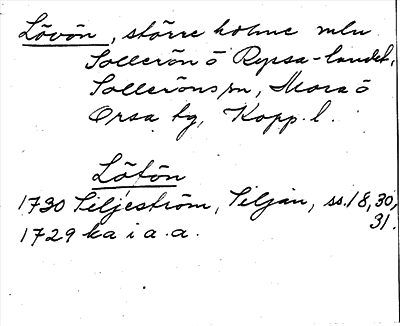 Lövön, större holme mln
Sollerön o Ryssa-landet,
Solleröns sn, Mora o
Orsa tg, Kopp. l.
Löfön
1730 Siljeström, Siljan, ss. 18, 30,
31.
1729 ka i a. a.